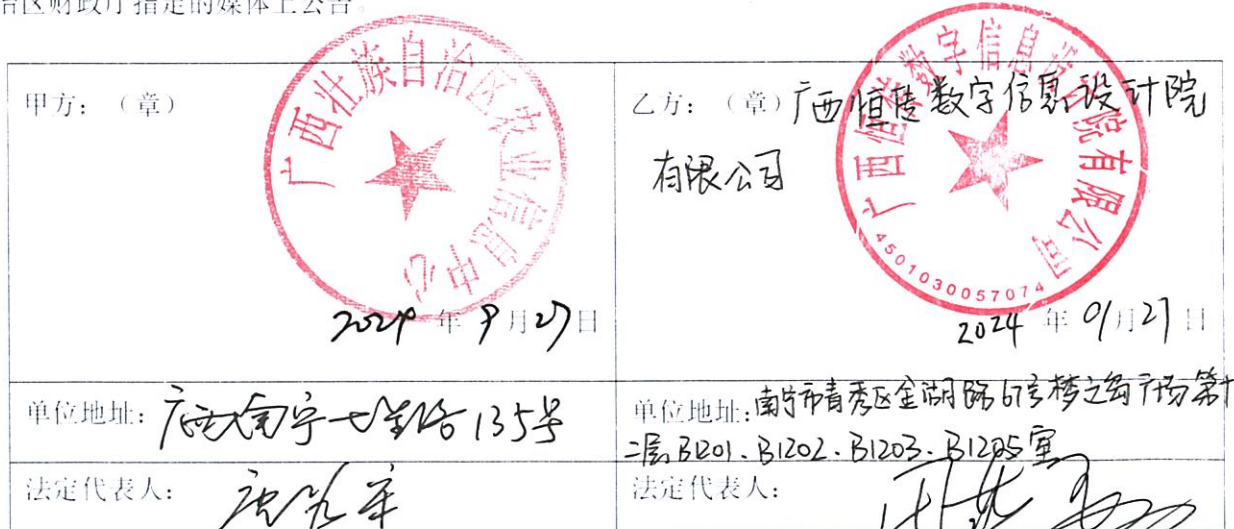 治区财政厅指定的媒体上公告。
甲方：（章）
广西壮族自治区农业信息中心
2024 年 9 月 27 日
乙方：（章）广西恒楼数字信息设计院
有限公司
数字信息设计院有限公司
4501030057074
2024 年 9 月 27 日
单位地址：广西南宁七星路135号
单位地址：南宁市青秀区金湖路67号梦之岛广场第十
二层B1201、B1202、B1203、B1205室
法定代表人：
法定代表人：